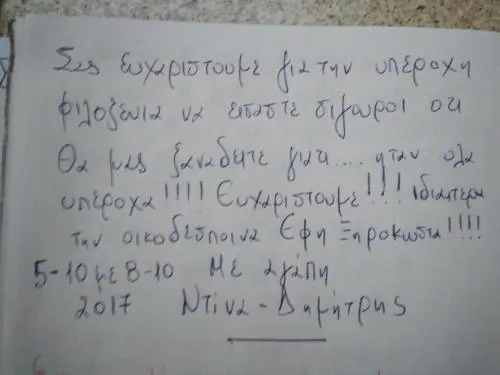 Σας ευχαριστουμε για την υπεροχη
φιλοξενια να εισαστε σιγουροι οτι
θα μας ξαναδειτε γιατι.... ηταν ολα
υπεροχα!!!! Ευχαριστουμε!!! ιδιαιτερα
την οικοδεσποινα Εφη Ξηροκωστα!!!!
5-10 με 8-10 Με αγάπη
2017 Ντίνα - Δημήτρης